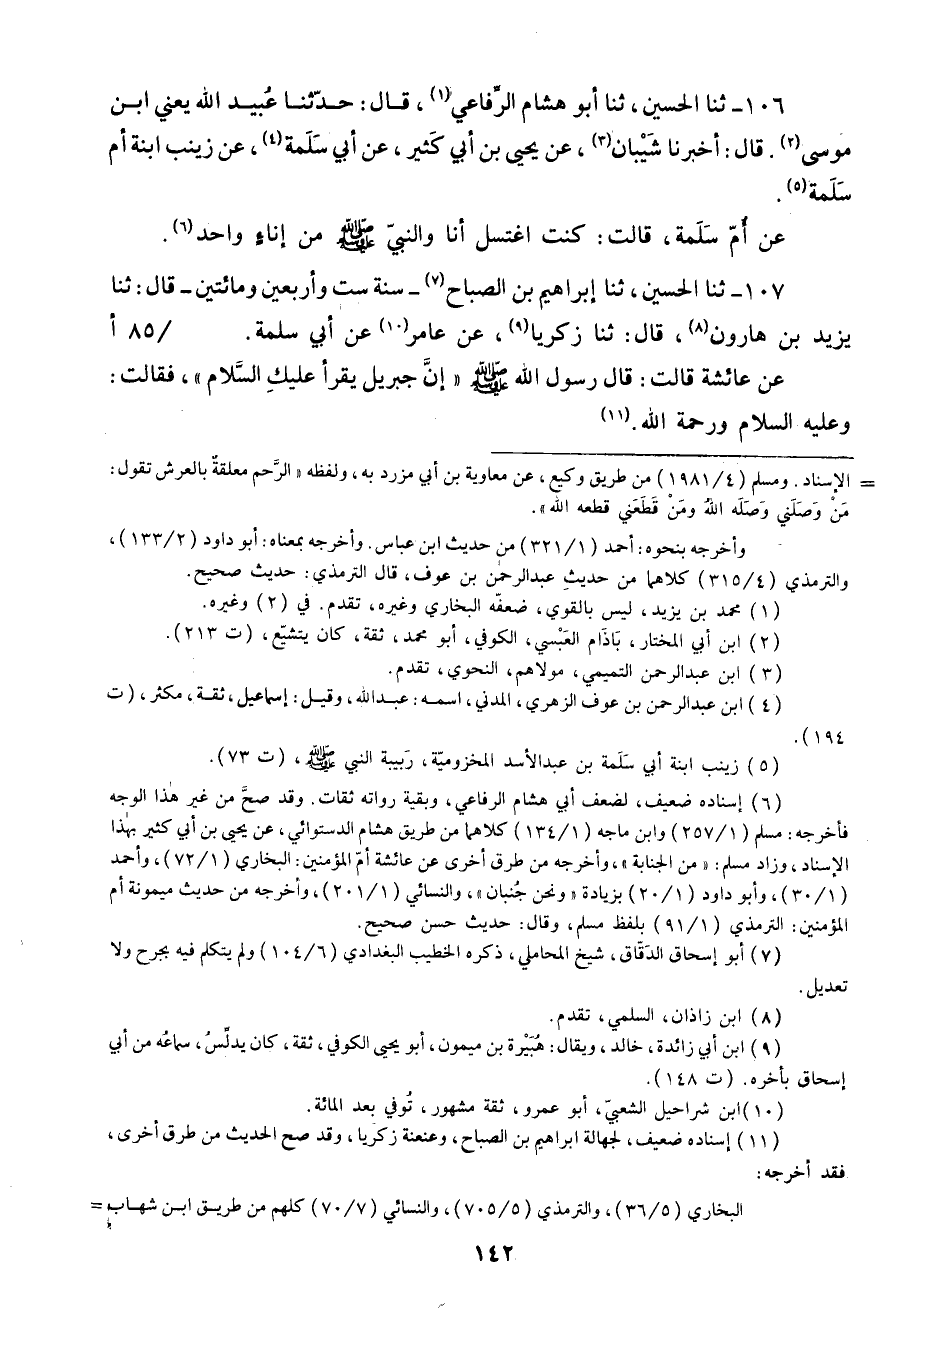 ١٠٦ـ ثنا الحسين، ثنا أبو هشام الرِّفاعي(١)، قال: حدّثنا عُبيد الله يعني ابن
موسى(٢). قال: أخبرنا شَيْبان(٣)، عن يحيى بن أبي كَثير، عن أبي سَلَمة(٤)، عن زينب ابنة أم
سَلَمة(٥).
عن أُمّ سَلَمة، قالت: كنت اغتسل أنا والنبيّ ﷺ من إناءٍ واحد(٦).
١٠٧ـ ثنا الحسين، ثنا إبراهيم بن الصباح(٧) ـ سنة ست وأربعين ومائتين ـ قال: ثنا
يزيد بن هارون(٨)، قال: ثنا زكريا(٩)، عن عامر(١٠) عن أبي سلمة. /٨٥ أ
عن عائشة قالت: قال رسول الله ﷺ «إنَّ جبريل يقرأ عليكِ السَّلام»، فقالت:
وعليه السلام ورحمة الله.(١١)
= الإسناد. ومسلم (١٩٨١/٤) من طريق وكيع، عن معاوية بن أبي مزرد به، ولفظه «الرَّحم معلقةٌ بالعرش تقول:
مَنْ وَصَلَني وَصَلَه اللهُ ومَنْ قَطَعَني قطعه الله».
وأخرجه بنحوه: أحمد (٣٢١/١) من حديث ابن عباس. وأخرجه بمعناه: أبو داود (١٣٣/٢)،
والترمذي (٣١٥/٤) كلاهما من حديث عبدالرحمٰن بن عوف، قال الترمذي: حديث صحيح.
(١) محمد بن يزيد، ليس بالقوي، ضعفّه البخاري وغيره، تقدم. في (٢) وغيره.
(٢) ابن أبي المختار، بَاذَام العَبْسي، الكوفي، أبو محمد، ثقة، كان يتشيّع، (ت ٢١٣).
(٣) ابن عبدالرحمن التميمي، مولاهم، النحوي، تقدم.
(٤) ابن عبدالرحمن بن عوف الزهري، المدني، اسمه: عبدالله، وقيل: إسماعيل، ثقة، مكثر، (ت
١٩٤).
(٥) زينب ابنة أبي سَلَمة بن عبدالأسد المخزوميّة، رَبيبة النبي ﷺ، (ت ٧٣).
(٦) إسناده ضعيف، لضعف أبي هشام الرفاعي، وبقية رواته ثقات. وقد صحَّ من غير هٰذا الوجه
فأخرجه: مسلم (٢٥٧/١) وابن ماجه (١٣٤/١) كلاهما من طريق هشام الدستوائي، عن يحيى بن أبي كثير بهٰذا
الإسناد، وزاد مسلم: «من الجنابة»، وأخرجه من طرق أخرى عن عائشة أمّ المؤمنين: البخاري (٧٢/١)، وأحمد
(٣٠/١)، وأبو داود (٢٠/١) بزيادة «ونحن جُنبان»، والنسائي (٢٠١/١)، وأخرجه من حديث ميمونة أم
المؤمنين: الترمذي (٩١/١) بلفظ مسلم، وقال: حديث حسن صحيح.
(٧) أبو إسحاق الدَّقّاق، شيخ المحاملي، ذكره الخطيب البغدادي (١٠٤/٦) ولم يتكلم فيه بجرح ولا
تعديل.
(٨) ابن زاذان، السلمي، تقدم.
(٩) ابن أبي زائدة، خالد، ويقال: هُبَيْرة بن ميمون، أبو يحيى الكوفي، ثقة، كان يدلّسُ، سماعُه من أبي
إسحاق بأخره. (ت ١٤٨).
(١٠)ابن شراحيل الشعبيّ، أبو عمرو، ثقة مشهور، تُوفي بعد المائة.
(١١) إسناده ضعيف، لجهالة ابراهيم بن الصباح، وعنعنة زكريا، وقد صح الحديث من طرق أخرى،
فقد أخرجه:
البخاري (٣٦/٥)، والترمذي (٧٠٥/٥)، والنسائي (٧٠/٧) كلهم من طريق ابن شهاب =
١٤٢